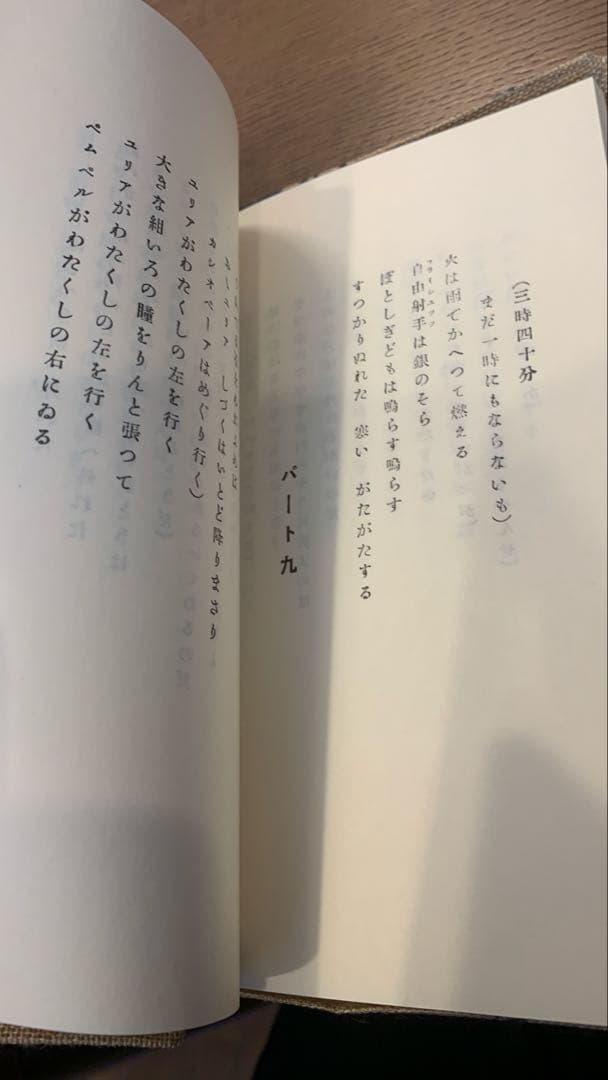 (三時四十分
まだ一時にもならないも)
火は雨でかへつて燃える
自由射手は銀のそら
フライシユツツ
ぼとしぎどもは鳴らす鳴らす
すつかりぬれた 寒い がたがたする
パート九
しづくはいとど降りまさり
カシオペーアはめぐり行く)
ユリアがわたくしの左を行く
大きな紺いろの瞳をりんと張つて
ユリアがわたくしの左を行く
ペムペルがわたくしの右にゐる